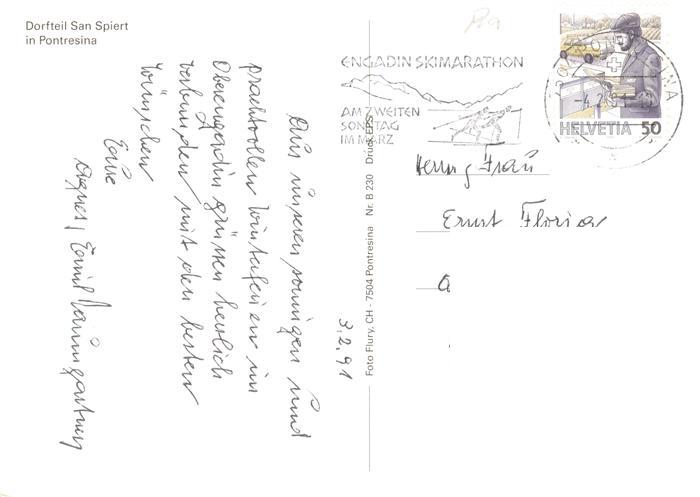 Dorfteil San Spiert
in Pontresina
3.2.91
Aus unseren sonnigen und
prachtvollen Winterferien im
Oberengadin grüssen herzlich
verbunden mit den besten
Wünschen
Eure
Agnes, Emil Baumgartner
Foto Flury, CH - 7504 Pontresina Nr. B 230 Druck EPS
ENGADIN SKIMARATHON
AM ZWEITEN
SONNTAG
IM MÄRZ
HELVETIA 50
Herrn, Frau
Ernst Florian
A